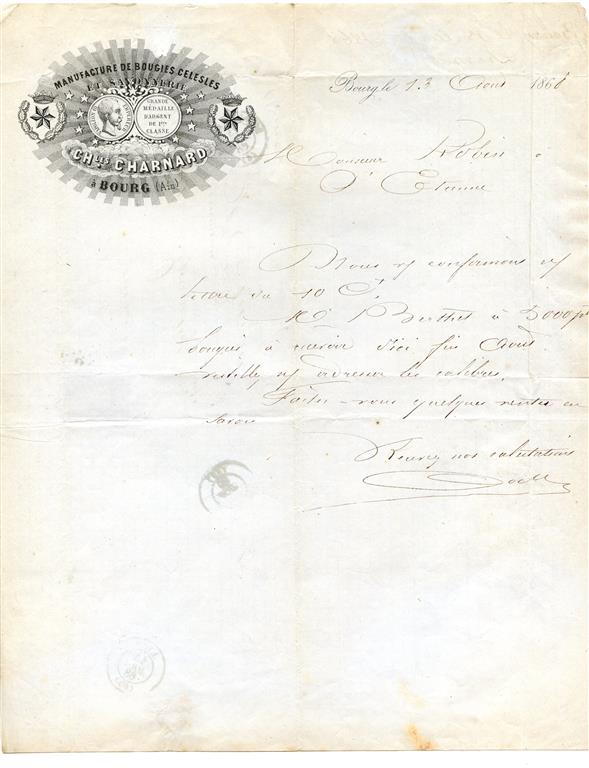 MANUFACTURE DE BOUGIES CÉLESTES
ET SAVONNERIE
GRANDE
MÉDAILLE
D'ARGENT
DE 1ère
CLASSE
CHLES CHARNARD
à BOURG (Ain)
Bourg le 13 Août 186
Monsieur Robin à
St Etienne
Nous vs confirmons n/
lettre du 10 Ct
Mr Berthet à 5000 pts
bougies à livrer d'ici fin Août
veuillez ns adresser les calibres.
Faites-vous quelques ventes en
savon
Recevez nos salutations